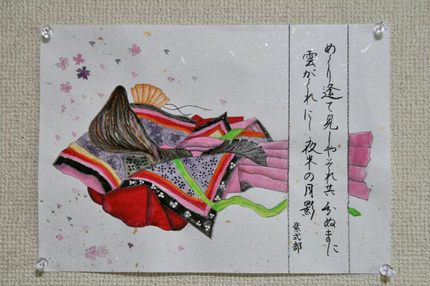 めぐり逢て見しやそれ共分ぬまに
雲がくれにし夜半の月影
紫式部